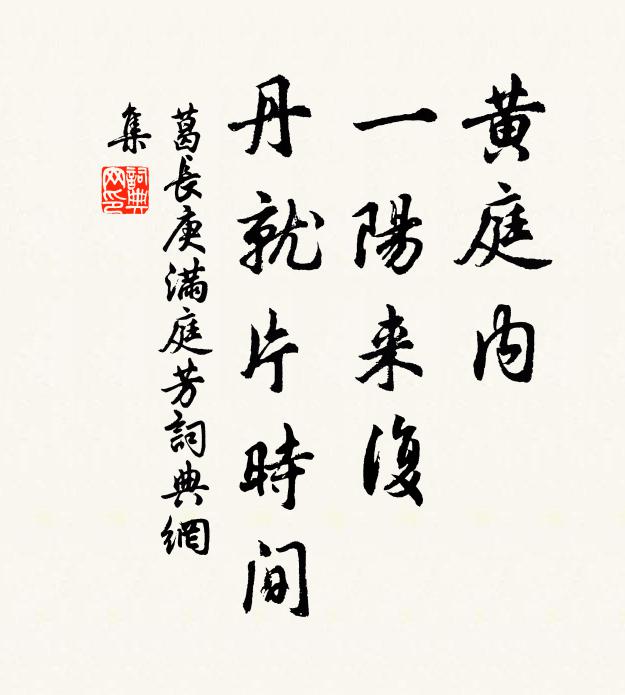 黄庭内
一陽来復
丹就片時间
葛長庚滿庭芳詞典網
集
詞典
网印